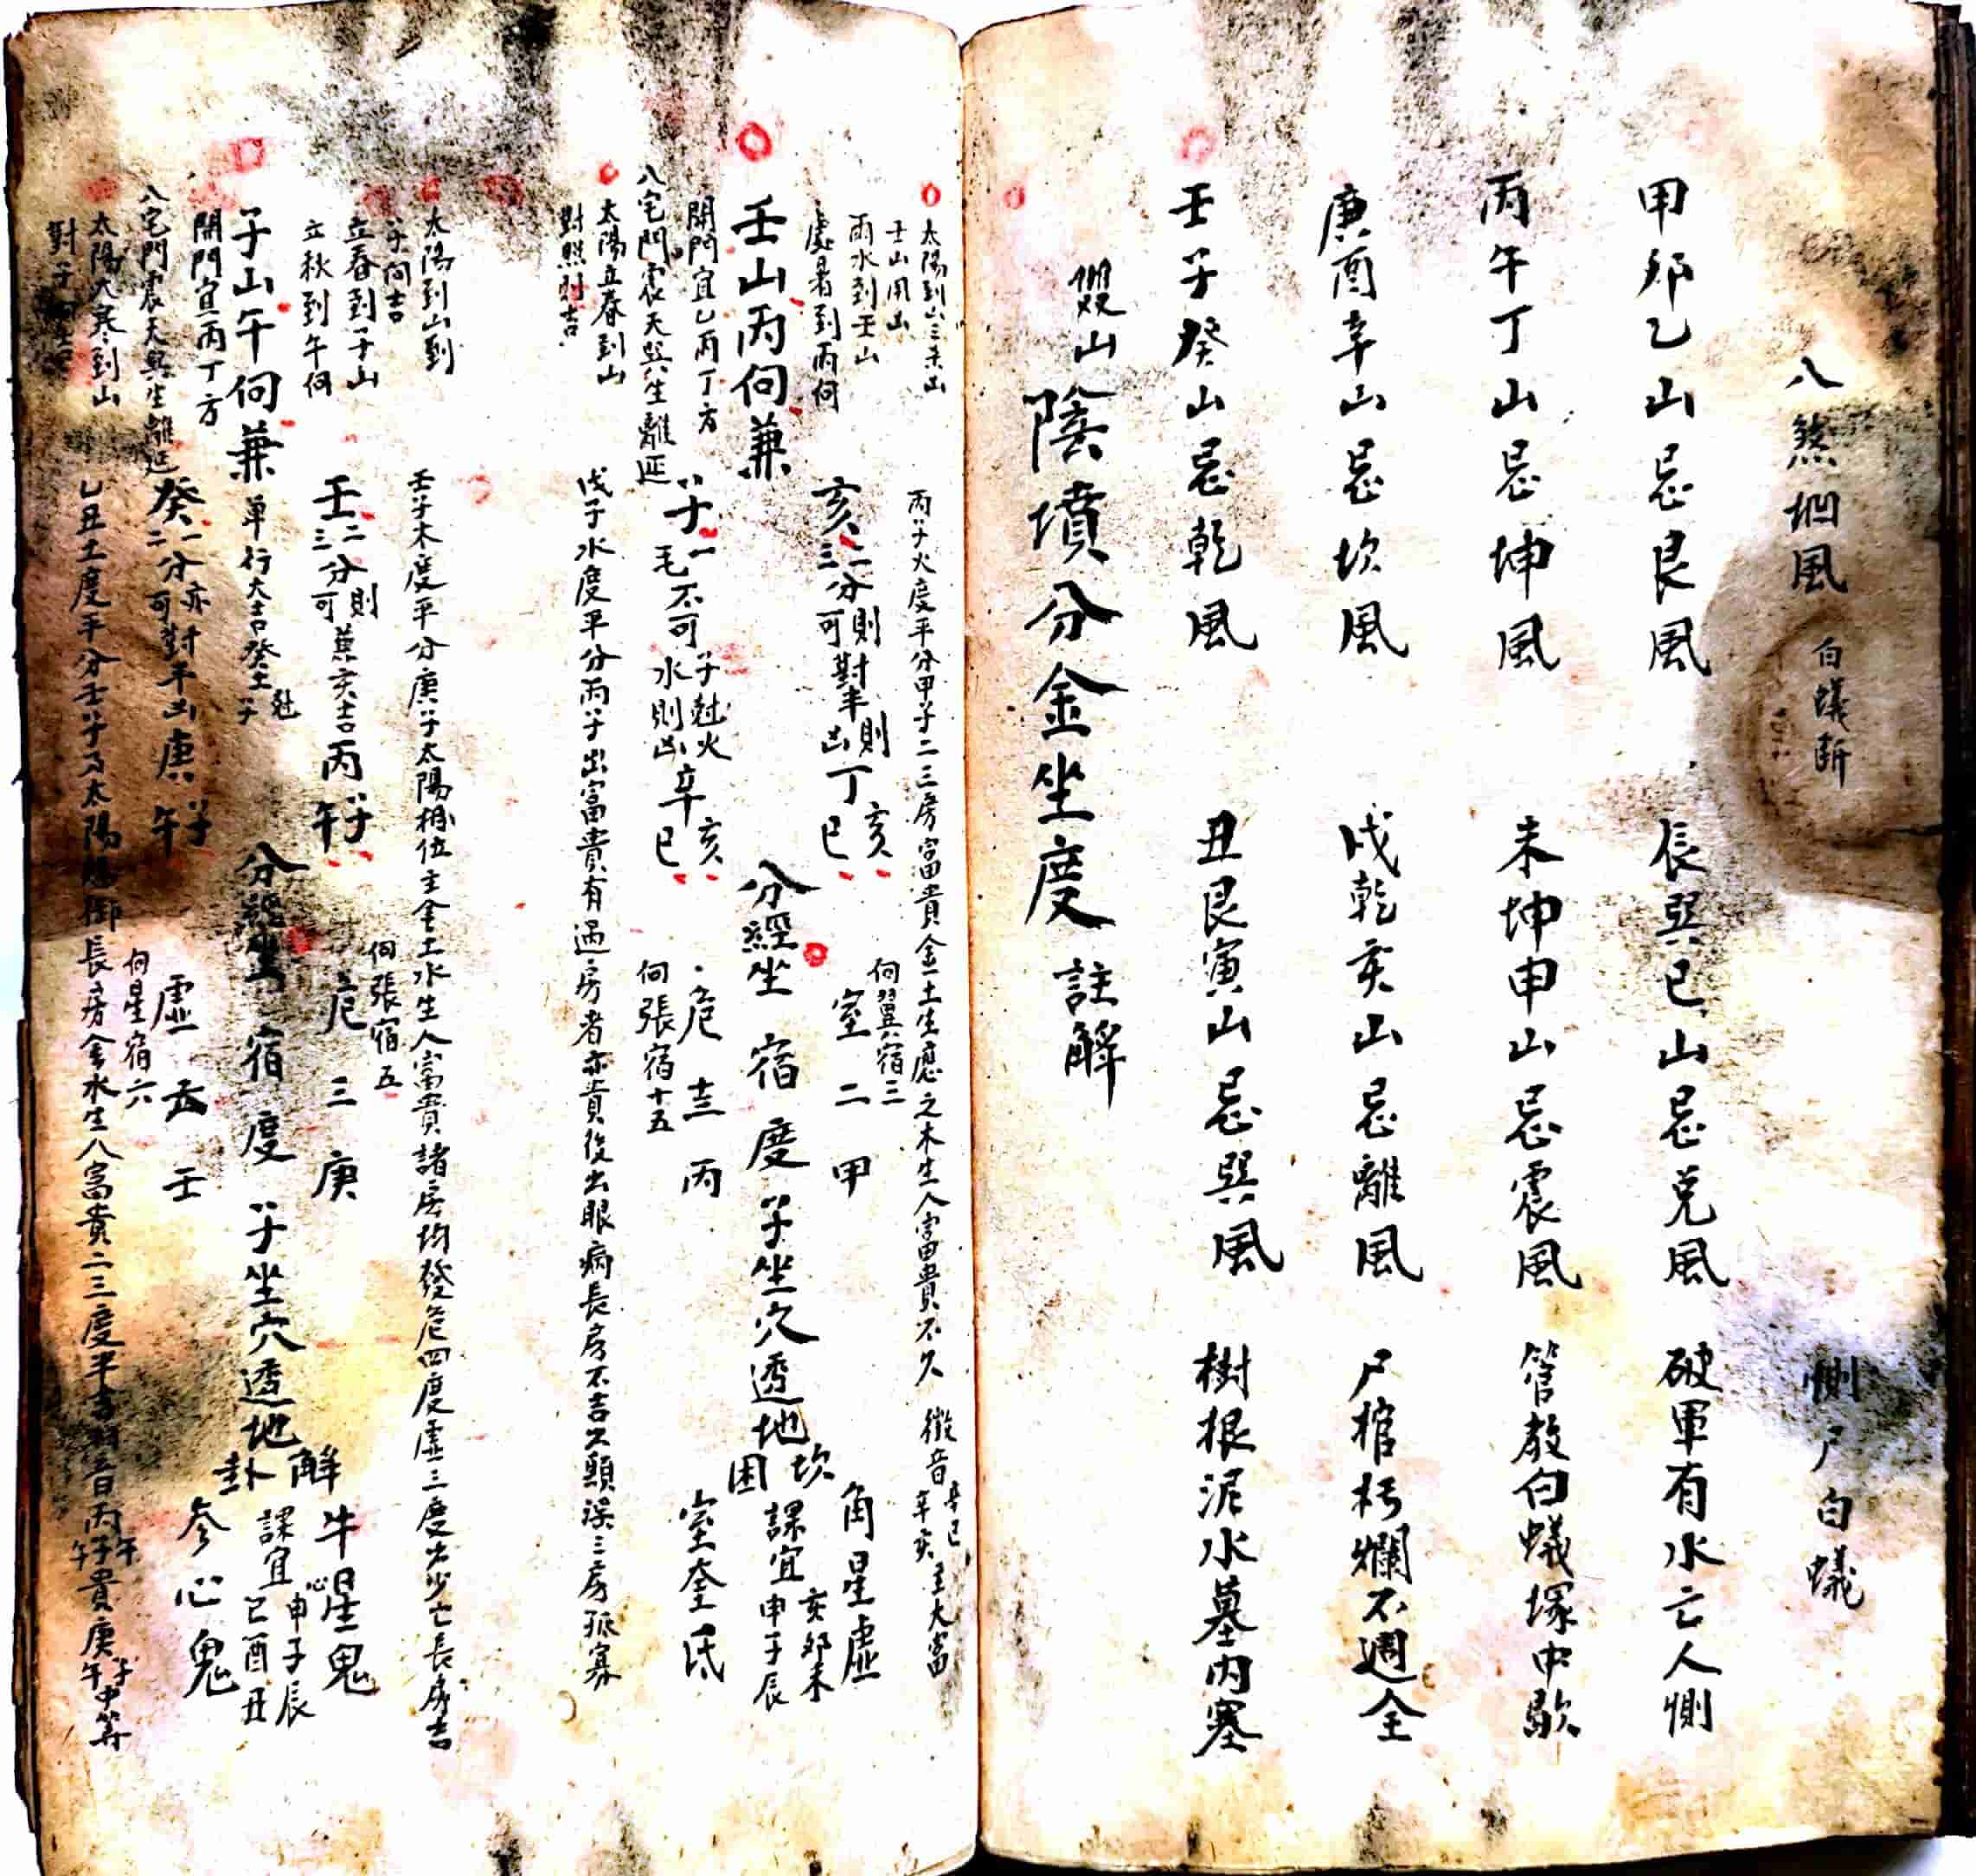 八煞埛風 白蟻斷 惻尸白蟻
甲卯乙山忌艮風 辰巽巳山忌兌風 破軍有水亡人惻
丙午丁山忌坤風 未坤申山忌震風 管教白蟻塚中歇
庚酉辛山忌坎風 戌乾亥山忌離風 尸棺朽爛不週全
壬子癸山忌乾風 丑艮寅山忌巽風 樹根泥水墓内塞
山陰墳分金坐度註解
太陽到山三未山
壬山用山
雨水到壬山
處暑到丙向
丙子火度平分甲子二三房富貴金土生應之木生人富貴不久 徵音辛巳辛亥主大富
亥二三分則可對半則凶丁亥巳
向翼宿三
室二甲
角星虛
壬山丙向兼
分經坐宿度子坐穴透地坎困
課宜亥卯未申子辰
開門宜乙丙丁方
八宅門震天巽生離延
子一毛不可子火水則凶辛亥巳
危十三丙
向張宿十五
室奎氐
太陽立春到山
對照到吉
戊子水度平分丙子出富貴有過房者亦貴後出眼病長房不吉二房三房孤寡
太陽到山到
子向吉
立春到子山
立秋到午向
壬子木度平分庚子太陽相位主金土水生人富貴諸房均發危四度虛三度出少亡長房吉
壬二三分則可兼亥吉丙子午
向張宿五
危三庚
牛星鬼
子山午向兼單行大吉
分經坐宿度子坐穴透地解卦
課宜申子辰巳酉丑
開門宜丙丁方
八宅門震天巽生離延
癸一二分亦可對半凶庚子午
向星宿六
虛五壬
參心鬼
太陽大寒到山
對子
乙丑土度平分壬子及太陽 長房金水生人富貴二三度半吉 音丙子午貴庚子午中等